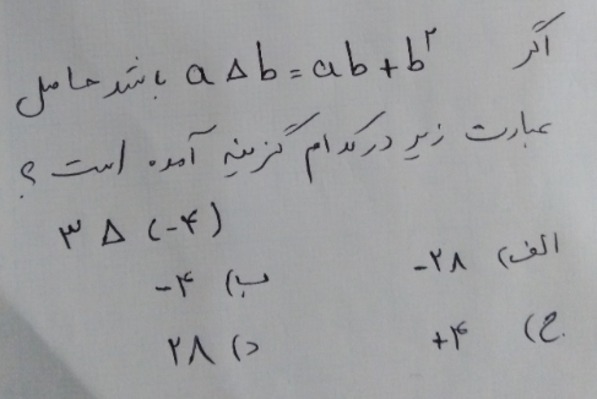 اگر a Δ b = ab + b² باشد حاصل
عبارت زیر در کدام گزینه آمده است ؟
۳ Δ (-۴)
الف) -۲۸ ب) -۴
ج) +۴ د) ۲۸